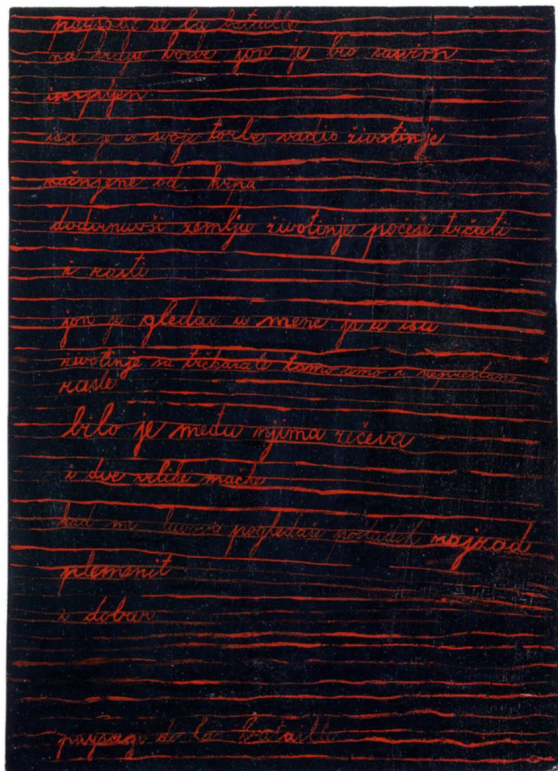 paysage de la bataille
na kraju borbe jon je bio sasvim
iscrpljen
isa je iz svoje torbe vadio životinje
načinjene od krpa
dodirnuvši zemlju životinje počeše trčati
i rasti
jon je gledao u mene ja u isu
životinje su trčkarale tamo amo i neprestano
rasle
bilo je među njima rićeva
i dve velike mačke
kad me pogledaše postadoh najzad
plemenit
i dobar
paysage de la bataille